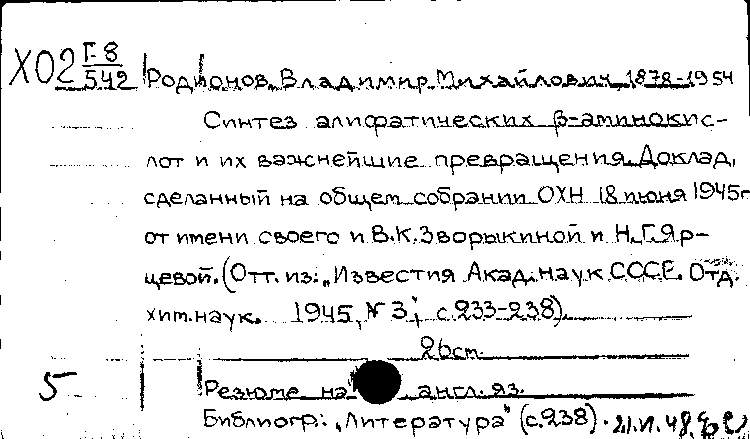 X02 Г-8/542 Родионов, Владимир Михайлович, 1878-1954
Синтез алифатических β-аминокис-
лот и их важнейшие превращения. Доклад,
сделанный на общем собрании ОХН 18 июня 1945г
от имени своего и В.К.Зворыкиной и Н.Г.Яр-
цевой. (Отт. из: „Известия Акад. наук СССР. Отд.
хим. наук. 1945, № 3", с.233-238).
26cm.
5 Резюме на англ. яз.
Библиогр: „Литература" (с.238). 21.VI.48.